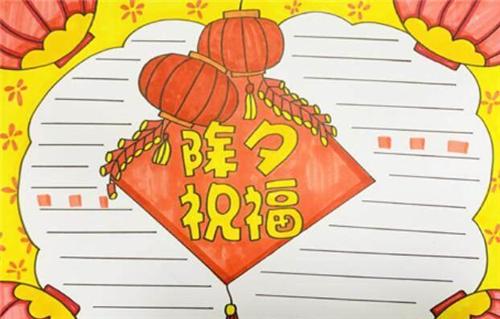 除夕
祝福